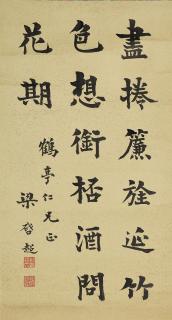 盡捲簾旌延竹
色想銜桮酒問
花期
鶴亭仁兄正
梁啓超